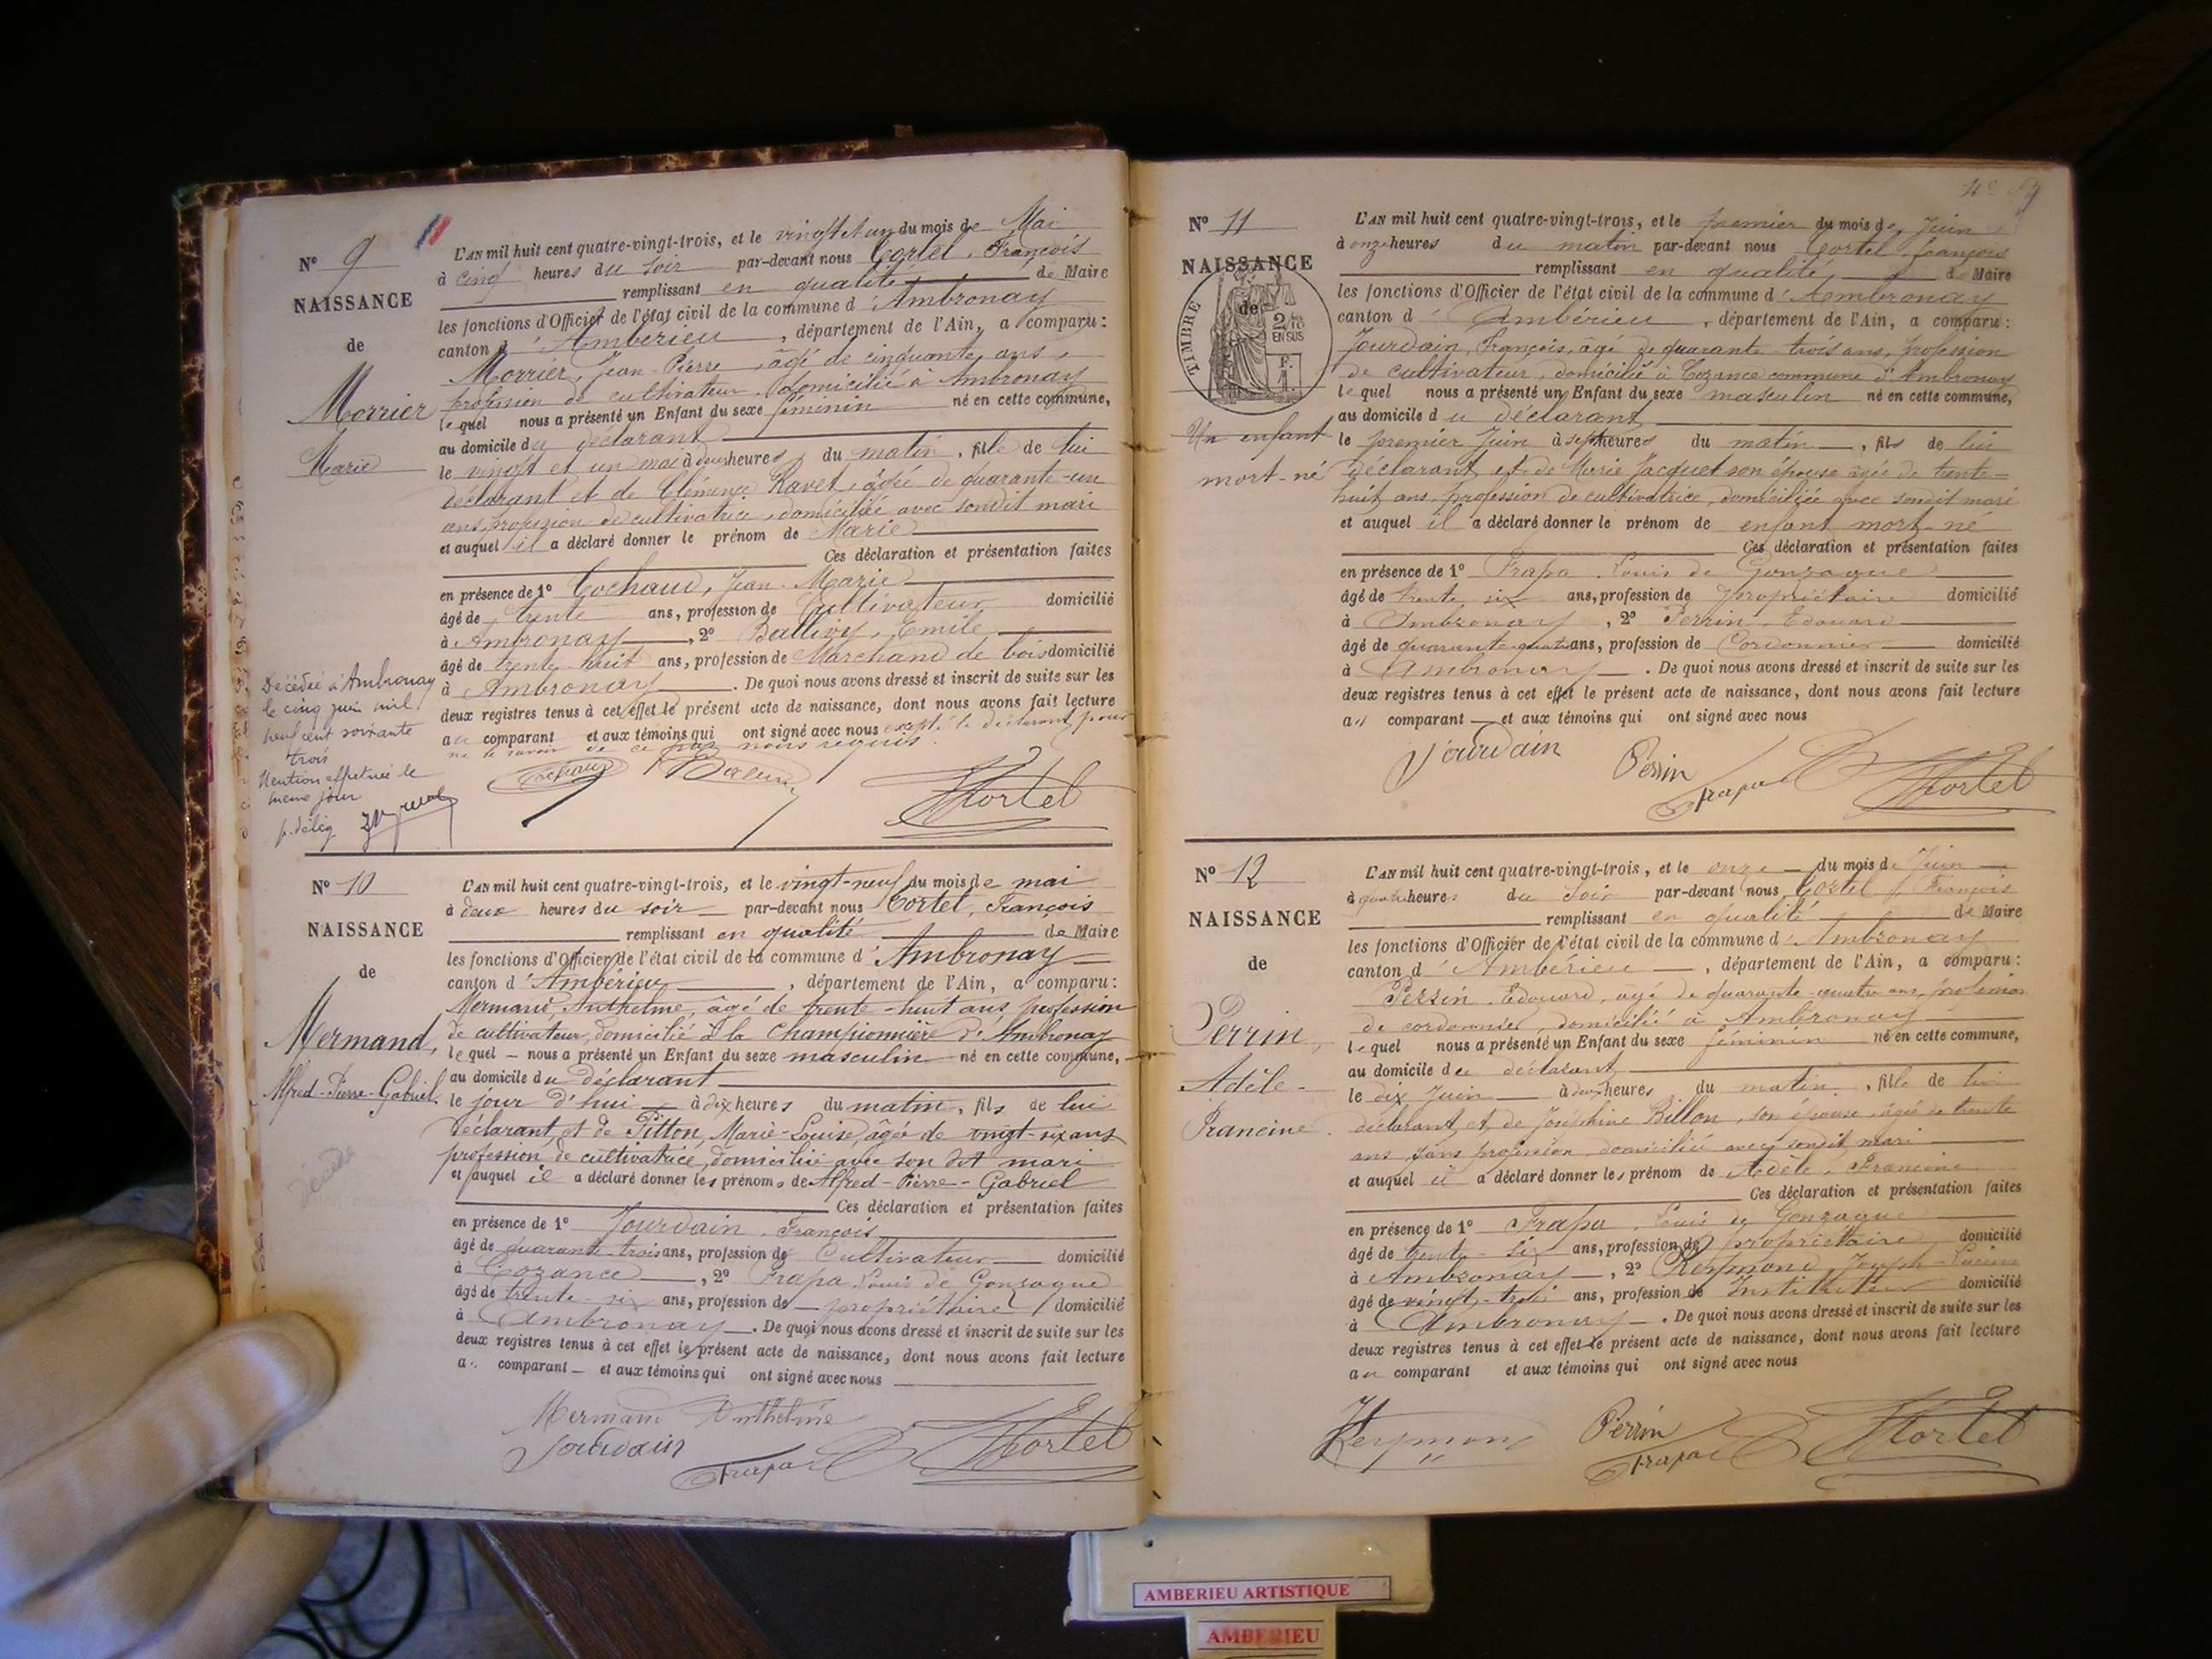 Nº 9
NAISSANCE
de
Morrier
Marie
L'AN mil huit cent quatre-vingt-trois, et le vingt et un du mois de Mai
à cinq heures du soir par-devant nous Cortel, François
remplissant en qualité de Maire
les fonctions d'Officier de l'état civil de la commune d'Ambronay
canton d'Ambérieu, département de l'Ain, a comparu:
Morrier, Jean-Pierre, âgé de cinquante ans,
profession de cultivateur, domicilié à Ambronay
lequel nous a présenté un Enfant du sexe féminin né en cette commune,
au domicile du déclarant
le vingt et un mai à deux heures du matin, fille de lui
déclarant et de Clémence Ravet, âgée de quarante-un
ans, profession de cultivatrice, domiciliée avec sondit mari
et auquel il a déclaré donner le prénom de Marie
Ces déclaration et présentation faites
en présence de 1º Cochaud, Jean-Marie
âgé de trente ans, profession de Cultivateur domicilié
à Ambronay, 2º Ballivy, Emile
âgé de trente-huit ans, profession de Marchand de bois domicilié
à Ambronay. De quoi nous avons dressé et inscrit de suite sur les
deux registres tenus à cet effet le présent acte de naissance, dont nous avons fait lecture
au comparant et aux témoins qui ont signé avec nous excepté le déclarant pour
ne le savoir de ce par nous requis.
Décédée à Ambronay
le cinq juin mil
neuf cent soixante
trois
Mention effectuée le
même jour
p. délég
Cochaud Cortel
Nº 10
NAISSANCE
de
Mermand,
Alfred-Pierre-Gabriel
décédé
L'AN mil huit cent quatre-vingt-trois, et le vingt-neuf du mois de mai
à deux heures du soir par-devant nous Cortel, François
remplissant en qualité de Maire
les fonctions d'Officier de l'état civil de la commune d'Ambronay
canton d'Ambérieu, département de l'Ain, a comparu:
Mermand, Anthelme, âgé de trente-huit ans, profession
de cultivateur, domicilié à la Championnière d'Ambronay
lequel nous a présenté un Enfant du sexe masculin né en cette commune,
au domicile du déclarant
le jour d'hui à dix heures du matin, fils de lui
déclarant, et de Pitton, Marie-Louise, âgée de vingt-six ans
profession de cultivatrice, domiciliée avec son dit mari
et auquel il a déclaré donner les prénoms de Alfred-Pierre-Gabriel
Ces déclaration et présentation faites
en présence de 1º Jourdain, François
âgé de quarante-trois ans, profession de Cultivateur domicilié
à Cozance, 2º Frapa Louis de Gonzague
âgé de trente-six ans, profession de propriétaire domicilié
à Ambronay. De quoi nous avons dressé et inscrit de suite sur les
deux registres tenus à cet effet le présent acte de naissance, dont nous avons fait lecture
au comparant et aux témoins qui ont signé avec nous
Mermand Anthelme
Jourdain Frapa Cortel
Nº 11
NAISSANCE
de
TIMBRE
2/10
EN SUS
F.
1.
Un enfant
mort-né
L'AN mil huit cent quatre-vingt-trois, et le premier du mois de Juin
à onze heures du matin par-devant nous Cortel François
remplissant en qualité de Maire
les fonctions d'Officier de l'état civil de la commune d'Ambronay
canton d'Ambérieu, département de l'Ain, a comparu:
Jourdain, François, âgé de quarante-trois ans, profession
de cultivateur, domicilié à Cozance commune d'Ambronay
lequel nous a présenté un Enfant du sexe masculin né en cette commune,
au domicile du déclarant
le premier Juin à sept heures du matin, fils de lui
déclarant et de Marie Jacquet son épouse âgée de trente=
huit ans, profession de cultivatrice, domiciliée avec sondit mari
et auquel il a déclaré donner le prénom de enfant mort-né
Ces déclaration et présentation faites
en présence de 1º Frapa Louis de Gonzague
âgé de trente six ans, profession de propriétaire domicilié
à Ambronay, 2º Perrin, Edouard
âgé de quarante-quatre ans, profession de Cordonnier domicilié
à Ambronay. De quoi nous avons dressé et inscrit de suite sur les
deux registres tenus à cet effet le présent acte de naissance, dont nous avons fait lecture
au comparant et aux témoins qui ont signé avec nous
Jourdain Perrin Frapa Cortel
Nº 12
NAISSANCE
de
Perrin,
Adèle-
Francine.
L'AN mil huit cent quatre-vingt-trois, et le onze du mois de Juin
à quatre heures du soir par-devant nous Cortel, François
remplissant en qualité de Maire
les fonctions d'Officier de l'état civil de la commune d'Ambronay
canton d'Ambérieu, département de l'Ain, a comparu:
Perrin, Edouard, âgé de quarante-quatre ans, profession
de cordonnier, domicilié à Ambronay
lequel nous a présenté un Enfant du sexe féminin né en cette commune,
au domicile du déclarant
le dix Juin à deux heures du matin, fille de lui
déclarant et de Joséphine Billon, son épouse, âgée de trente
ans, sans profession, domiciliée avec sondit mari
et auquel il a déclaré donner les prénom de Adèle, Francine
Ces déclaration et présentation faites
en présence de 1º Frapa, Louis de Gonzague
âgé de trente-six ans, profession de propriétaire domicilié
à Ambronay, 2º Reymond, Joseph-
âgé de vingt-trois ans, profession de Instituteur domicilié
à Ambronay. De quoi nous avons dressé et inscrit de suite sur les
deux registres tenus à cet effet le présent acte de naissance, dont nous avons fait lecture
au comparant et aux témoins qui ont signé avec nous
Reymond Perrin Frapa Cortel
AMBERIEU ARTISTIQUE
AMBERIEU